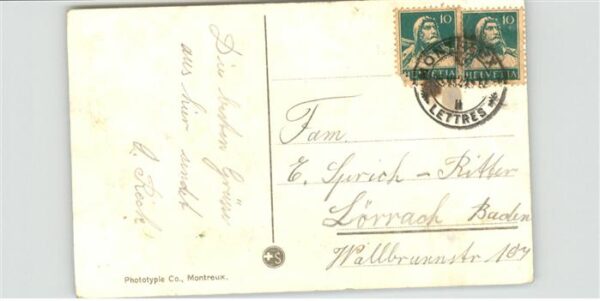 Die besten Grüsse
aus hier sendet
O. Koch
10 10
HELVETIA HELVETIA
MONTREUX
LETTRES
Fam.
E. Sprich - Ritter
Lörrach Baden
Wallbrunnstr 107
S
Phototypie Co., Montreux.